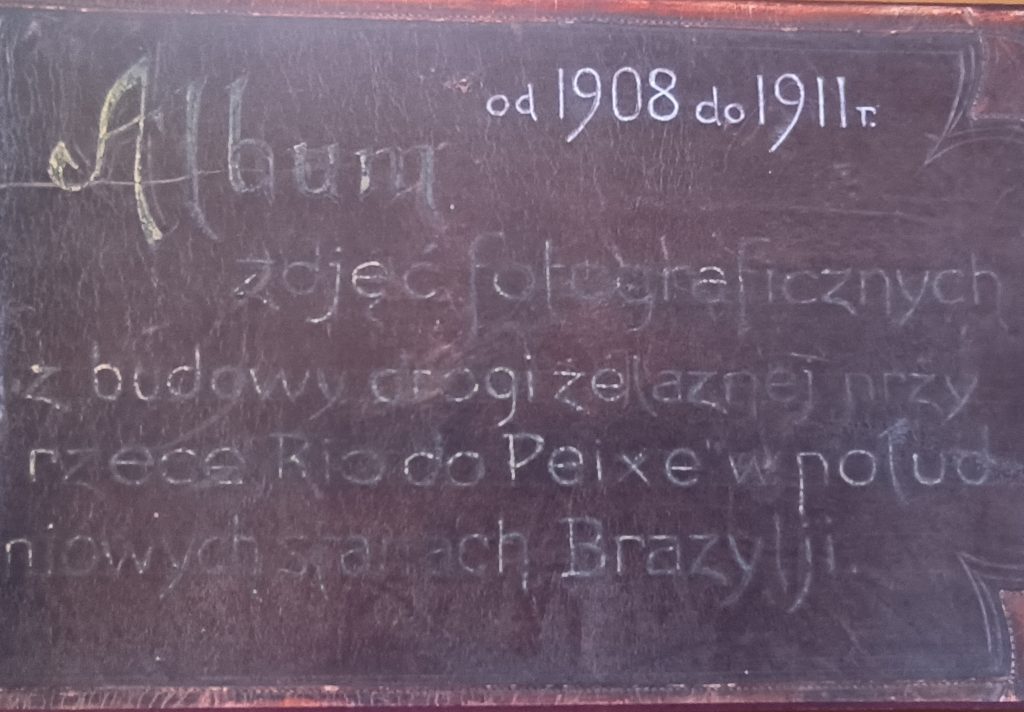 od 1908 do 1911 r.
Album
zdjęć fotograficznych
z budowy drogi żelaznej przy
rzece "Rio do Peixe" w połud
niowych stanach Brazylji.